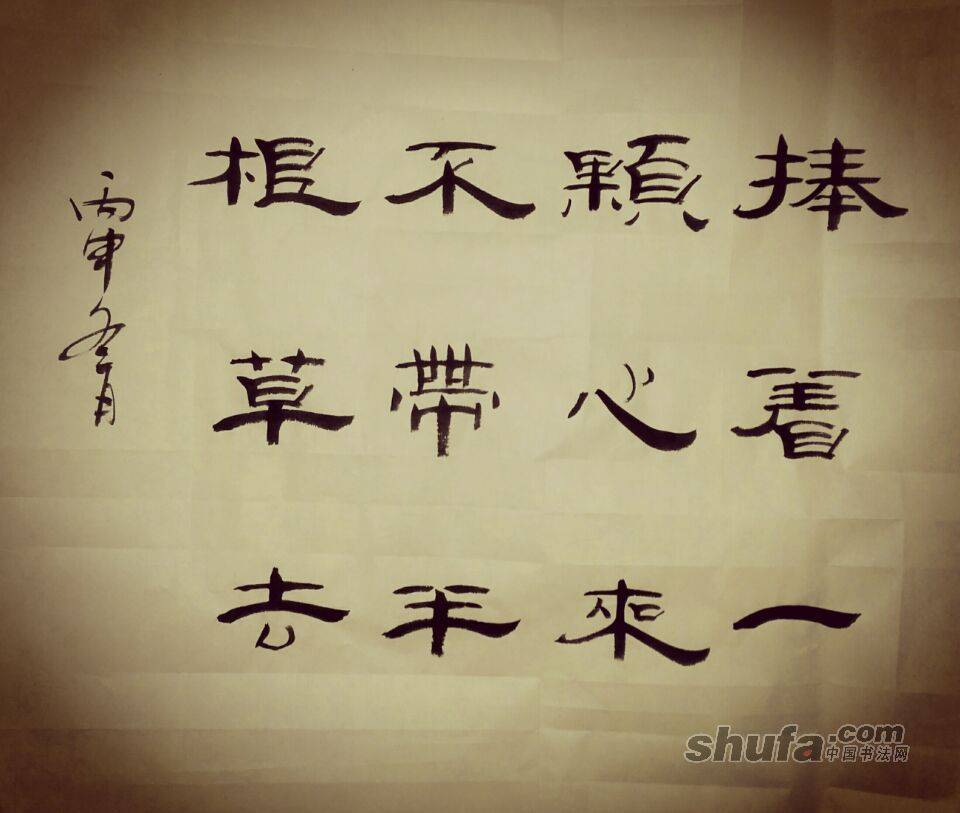 捧着一
顆心來
不帶半
根草去
丙申冬月
shufa.com
中国书法网